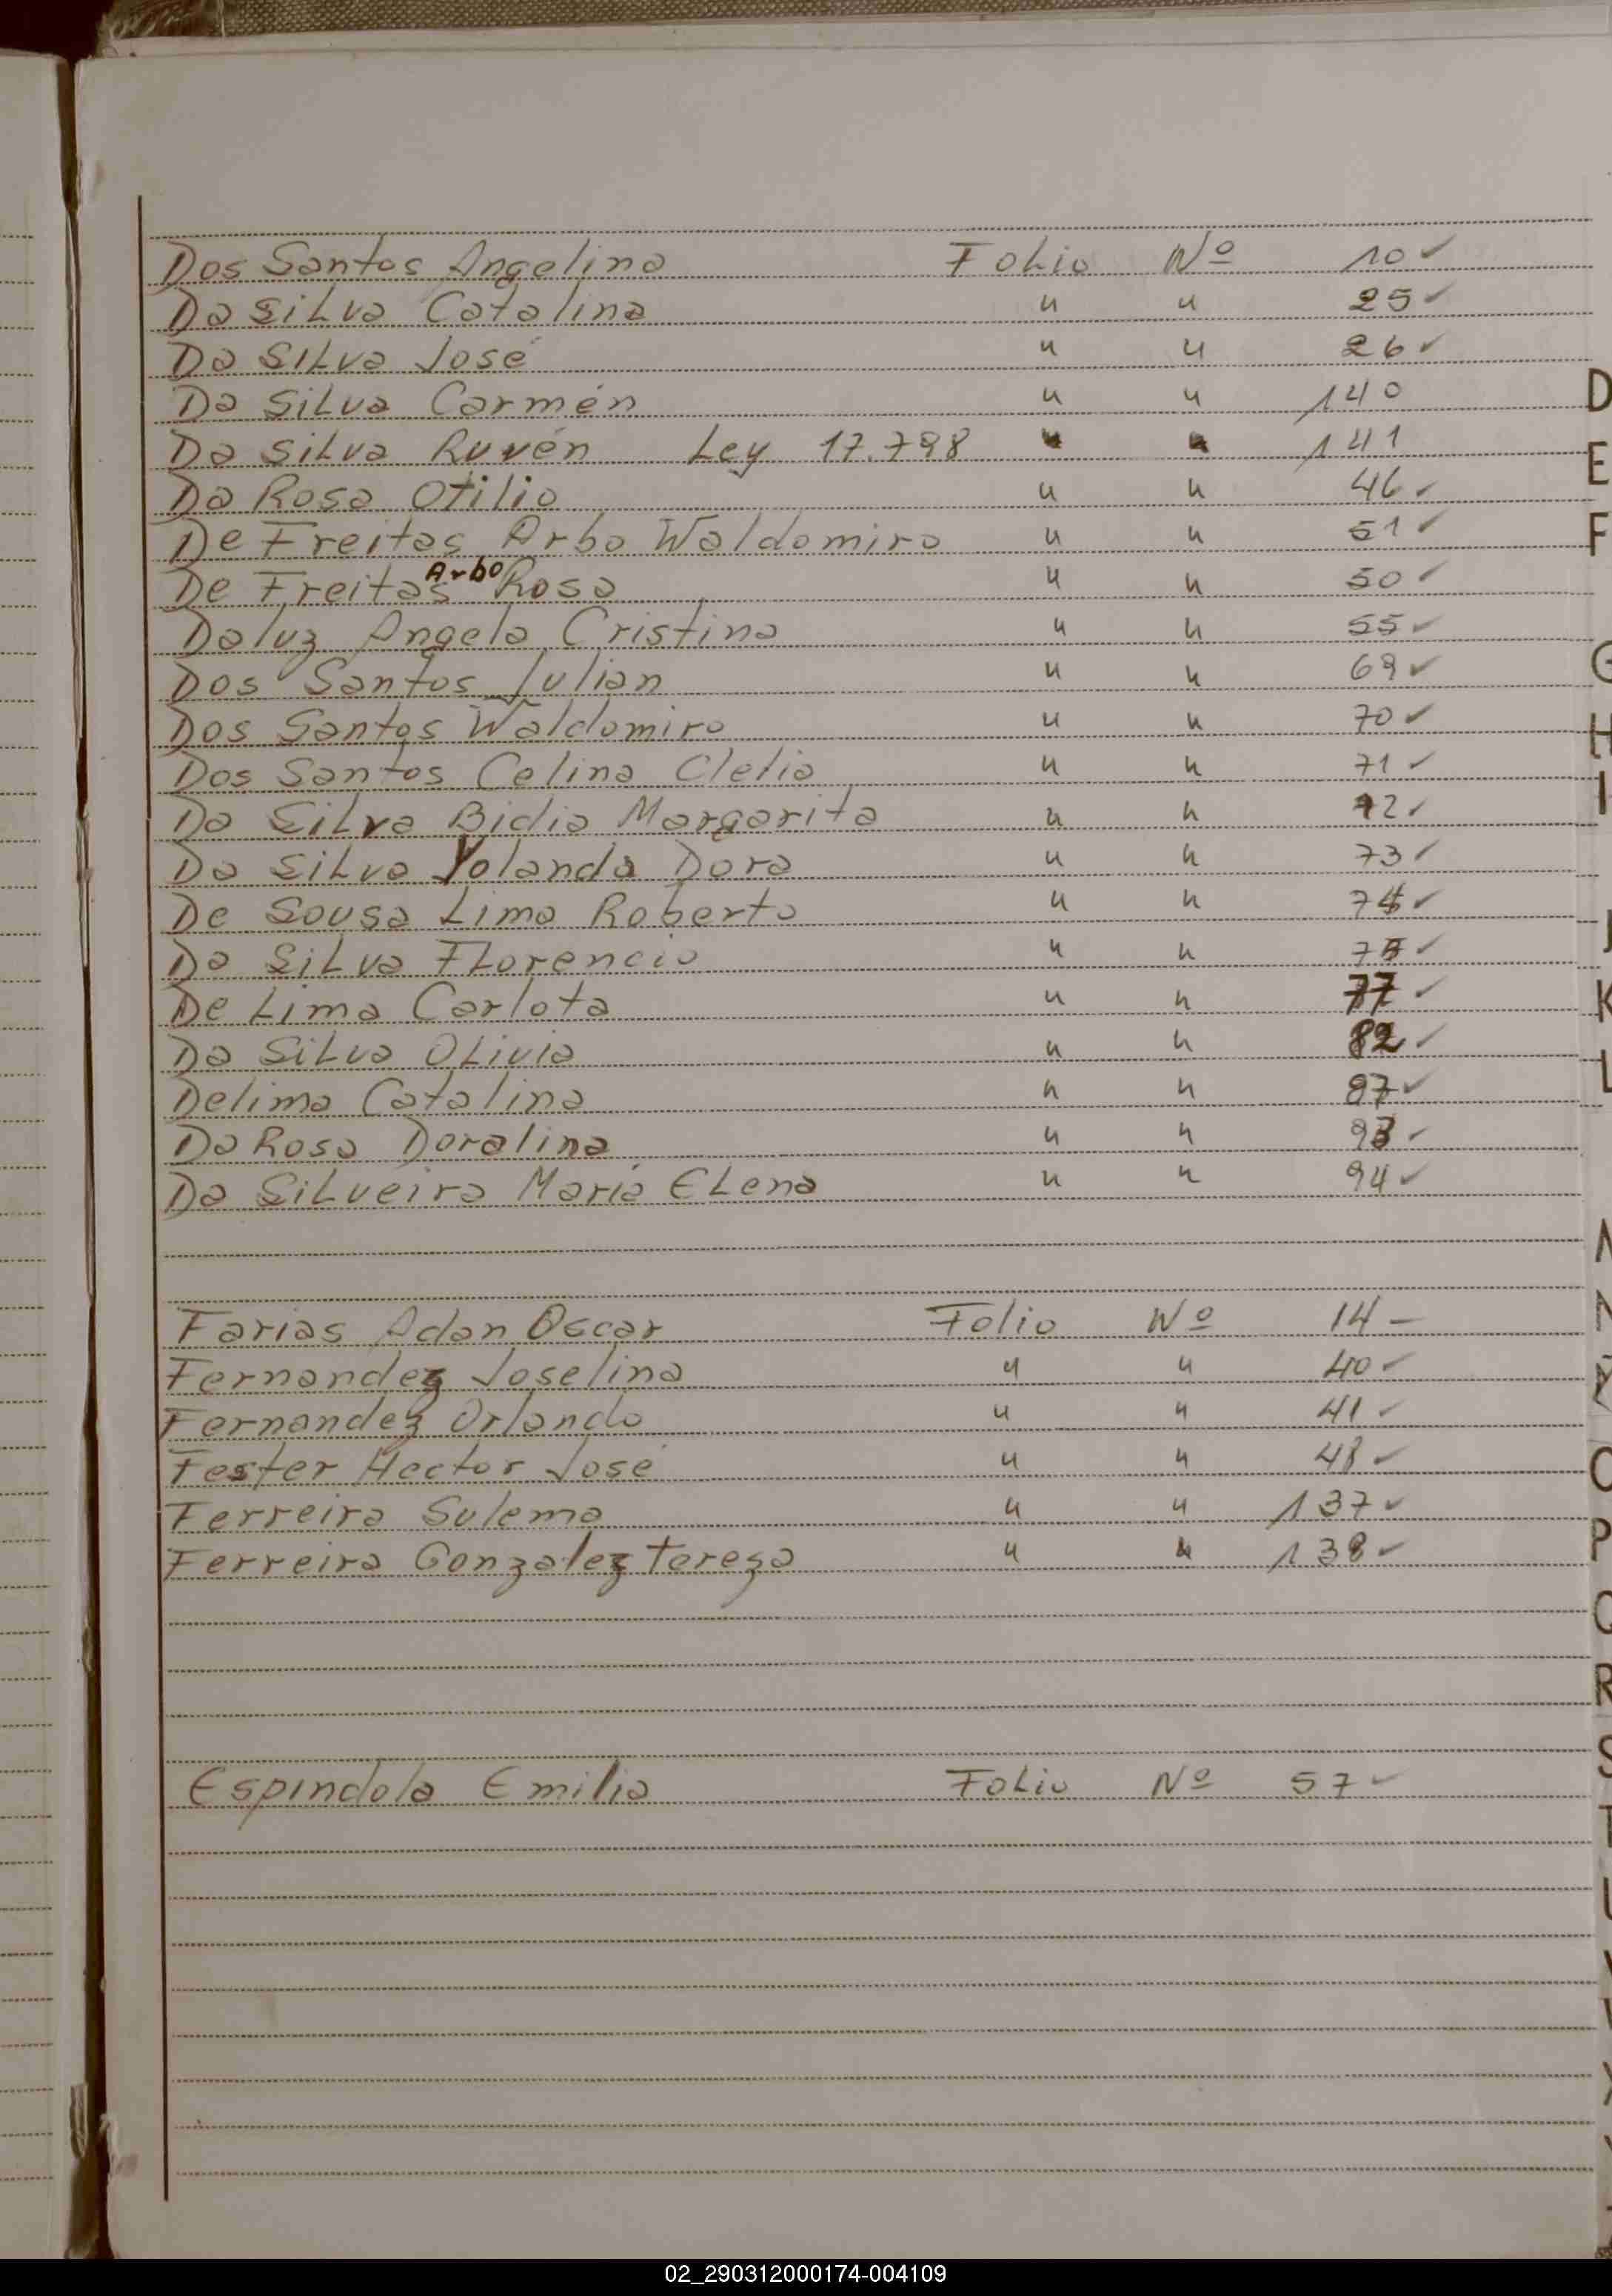 Dos Santos Angelina Folio Nº 10 ✓
Da Silva Catalina " " 25 ✓
Da Silva José " " 26 ✓
Da Silva Carmén " " 140
Da Silva Ruvén Ley 17.798 " " 141
Da Rosa Otilio " " 46 ✓
De Freitas Arbo Waldomiro " " 51 ✓
De Freitas Arbo Rosa " " 50 ✓
Daluz Angela Cristina " " 55 ✓
Dos Santos Julian " " 69 ✓
Dos Santos Waldomiro " " 70 ✓
Dos Santos Celina Clelia " " 71 ✓
Da Silva Bidia Margarita " " 72 ✓
Da Silva Yolanda Dora " " 73 ✓
De Sousa Lima Roberto " " 74 ✓
Da Silva Florencio " " 75 ✓
De Lima Carlota " " 77 ✓
Da Silva Olivia " " 82 ✓
Delima Catalina " " 87 ✓
Da Rosa Doralina " " 93 ✓
Da Silveira María Elena " " 94 ✓
Farias Adan Oscar Folio Nº 14 –
Fernandez Joselina " " 40 ✓
Fernandez Orlando " " 41 ✓
Fester Hector José " " 48 ✓
Ferreira Sulema " " 137 ✓
Ferreira Gonzalez Tereza " " 138 ✓
Espindola Emilia Folio Nº 57 ✓
D
E
F
G
H
I
J
K
L
M
N
O
P
Q
R
S
T
U
V
X
02_290312000174-004109